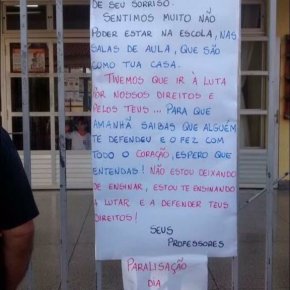 DE SEU SORRISO.
SENTIMOS MUITO NÃO
PODER ESTAR NA ESCOLA, NAS
SALAS DE AULA, QUE SÃO
COMO TUA CASA.
TIVEMOS QUE IR À LUTA
POR NOSSOS DIREITOS E
PELOS TEUS... PARA QUE
AMANHÃ SAIBAS QUE ALGUÉM
TE DEFENDEU E O FEZ COM
TODO O CORAÇÃO, ESPERO QUE
ENTENDAS! NÃO ESTOU DEIXANDO
DE ENSINAR, ESTOU TE ENSINANDO
A LUTAR E A DEFENDER TEUS
DIREITOS!
SEUS
PROFESSORES
PARALISAÇÃO
DIA